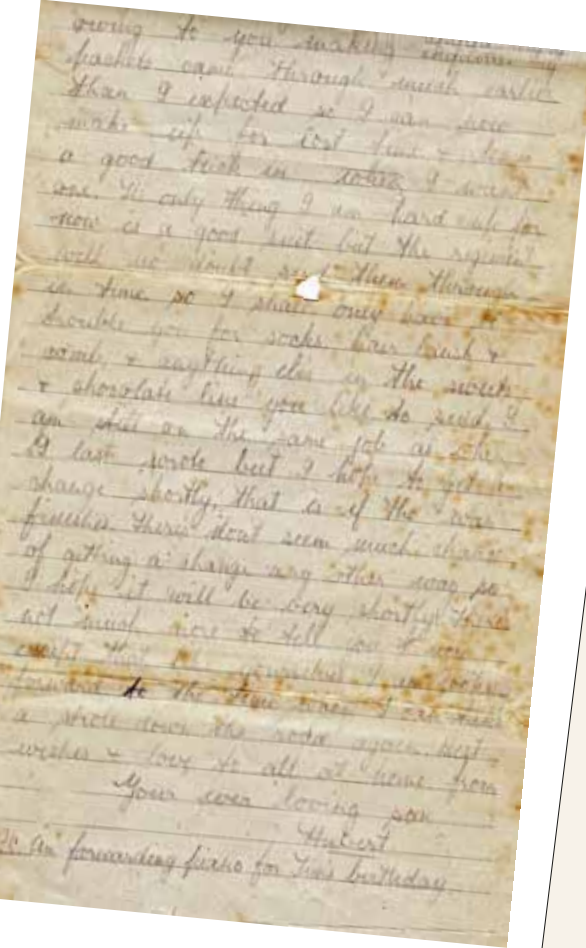 owing to you making enquiries
packets came through much earlier
than I expected so I can now
make up for lost time & have
a good tuck in when I want
one. The only thing I am hard up for
now is a good suit but the regiment
will no doubt send them through
in time so I shall only have to
trouble you for socks hair brush &
comb, & anything else in the sweets
& chocolate line you like to send. I
am still on the same job as when
I last wrote but I hope to get a
change shortly, that is if the war
finishes there dont seem much chance
of getting a change any other way so
I hope it will be very shortly. Theres
not much more to tell you
except that I
forward to the time when I can take
a stroke down the again best
wishes & love to all at home from
Your ever loving son
Hubert
Am forwarding for birthday